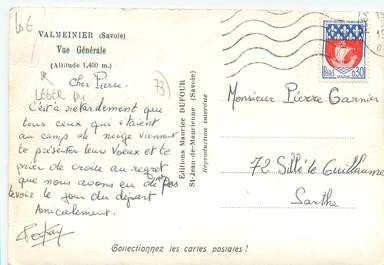 VALMEINIER (Savoie)
Vue Générale
(Altitude 1,400 m.)
Cher Pierre.
C'est à retardement que
tous ceux qui étaient
au camp de neige viennent
te présenter leur Voeux et te
prier de croire au regret
que nous avons eu de pas
te voir le jour du départ
Amicalement.
Editions Maurice DUFOUR
St-Jean-de-Maurienne (Savoie)
Reproduction interdite
PARIS 0,30
Monsieur Pierre Garnier
72 Sillé le Guillaume
Sarthe
Collectionnez les cartes postales !